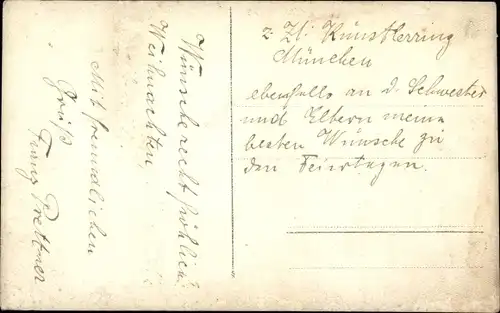 Wünsche recht fröhliche
Weihnachten.
Mit freundlichen
Grüß
Franz Prettner
z. Zl. Künstlerring
München
ebenfalls an d. Schwester
und Eltern meine
besten Wünsche zu
den Feiertagen.